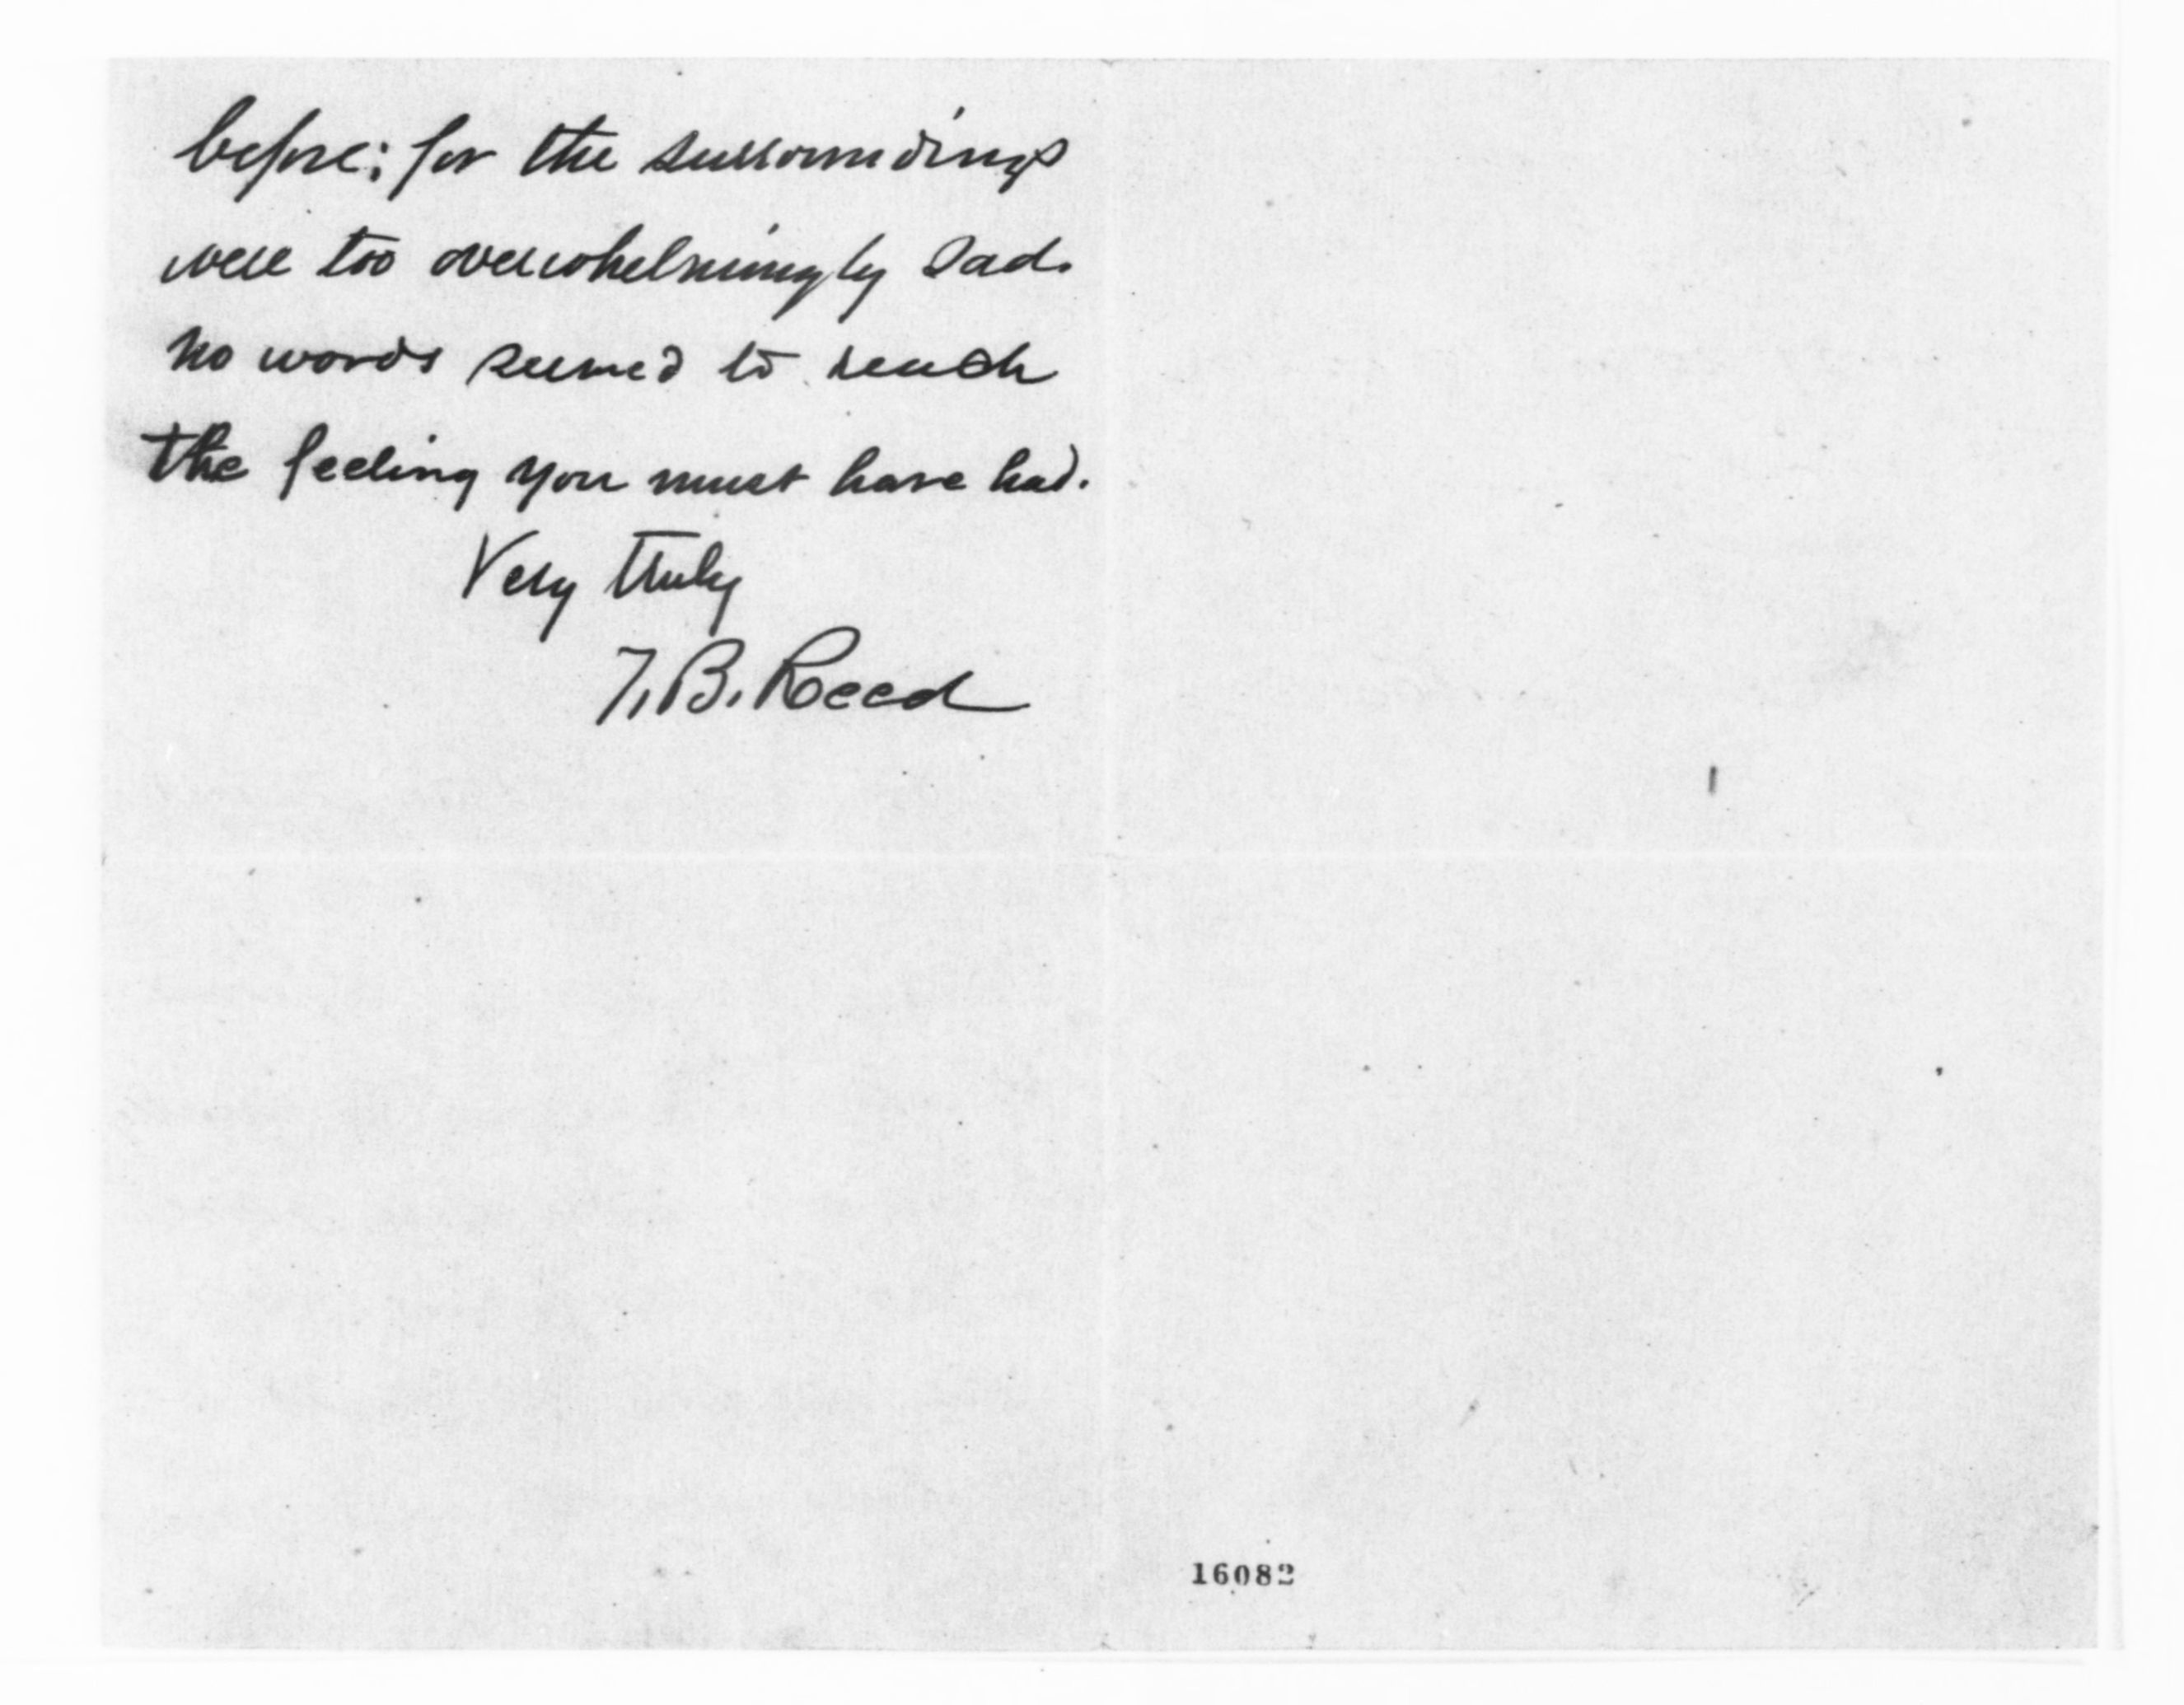 before; for the surroundings
were too overwhelmingly sad.
No words seemed to reach
the feeling you must have had.
Very truly
T. B. Reed
16082